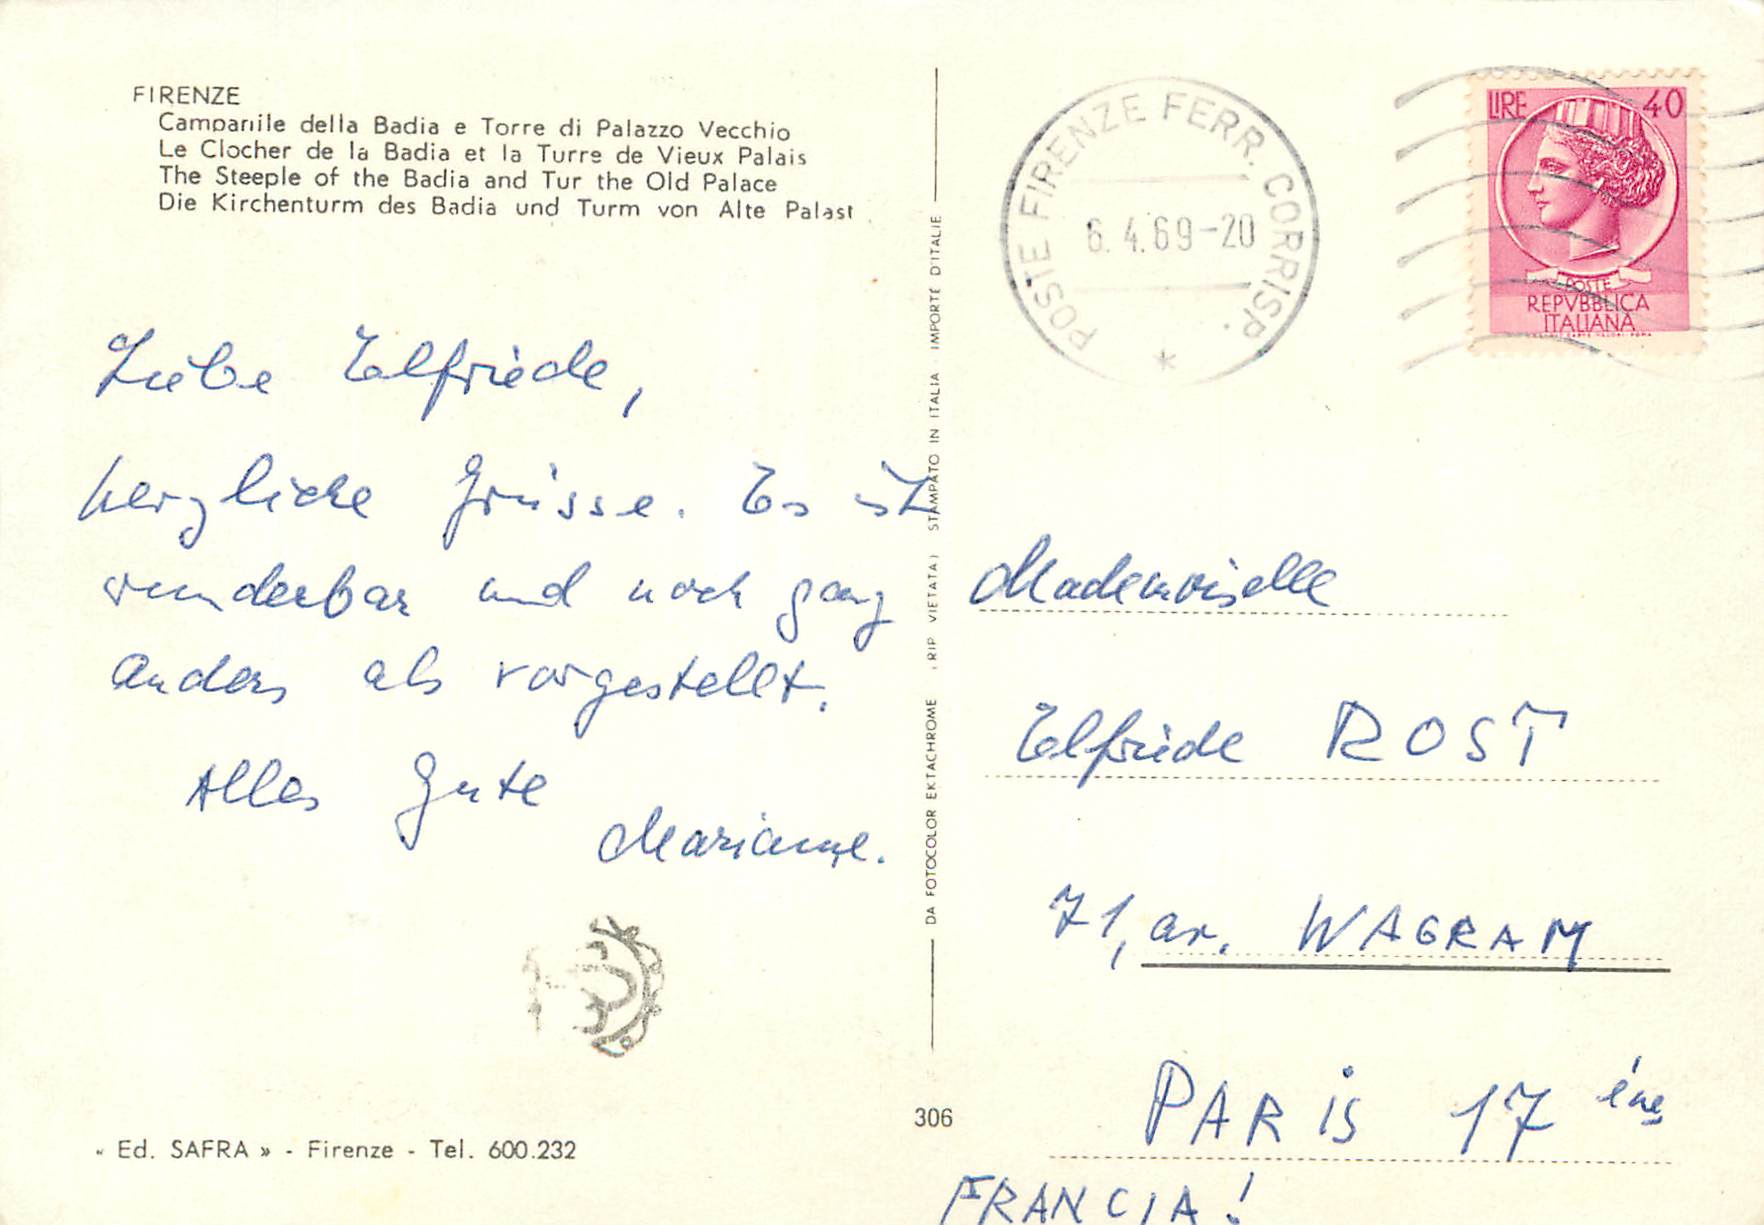 FIRENZE
Campanile della Badia e Torre di Palazzo Vecchio
Le Clocher de la Badia et la Turre de Vieux Palais
The Steeple of the Badia and Tur the Old Palace
Die Kirchenturm des Badia und Turm von Alte Palast
Liebe Elfriede,
herzliche Grüsse. Es ist
wunderbar und noch ganz
anders als vorgestellt.
Alles Gute
Marianne.
« Ed. SAFRA » - Firenze - Tel. 600.232
306
DA FOTOCOLOR EKTACHROME (RIP VIETATA) STAMPATO IN ITALIA IMPORTE D'ITALIE
POSTE FIRENZE FERR. CORRISP.
6.4.69-20
LIRE 40
POSTE
REPVBBLICA
ITALIANA
Mademoiselle
Elfriede ROST
71, av. WAGRAM
PARIS 17 ème
FRANCIA!